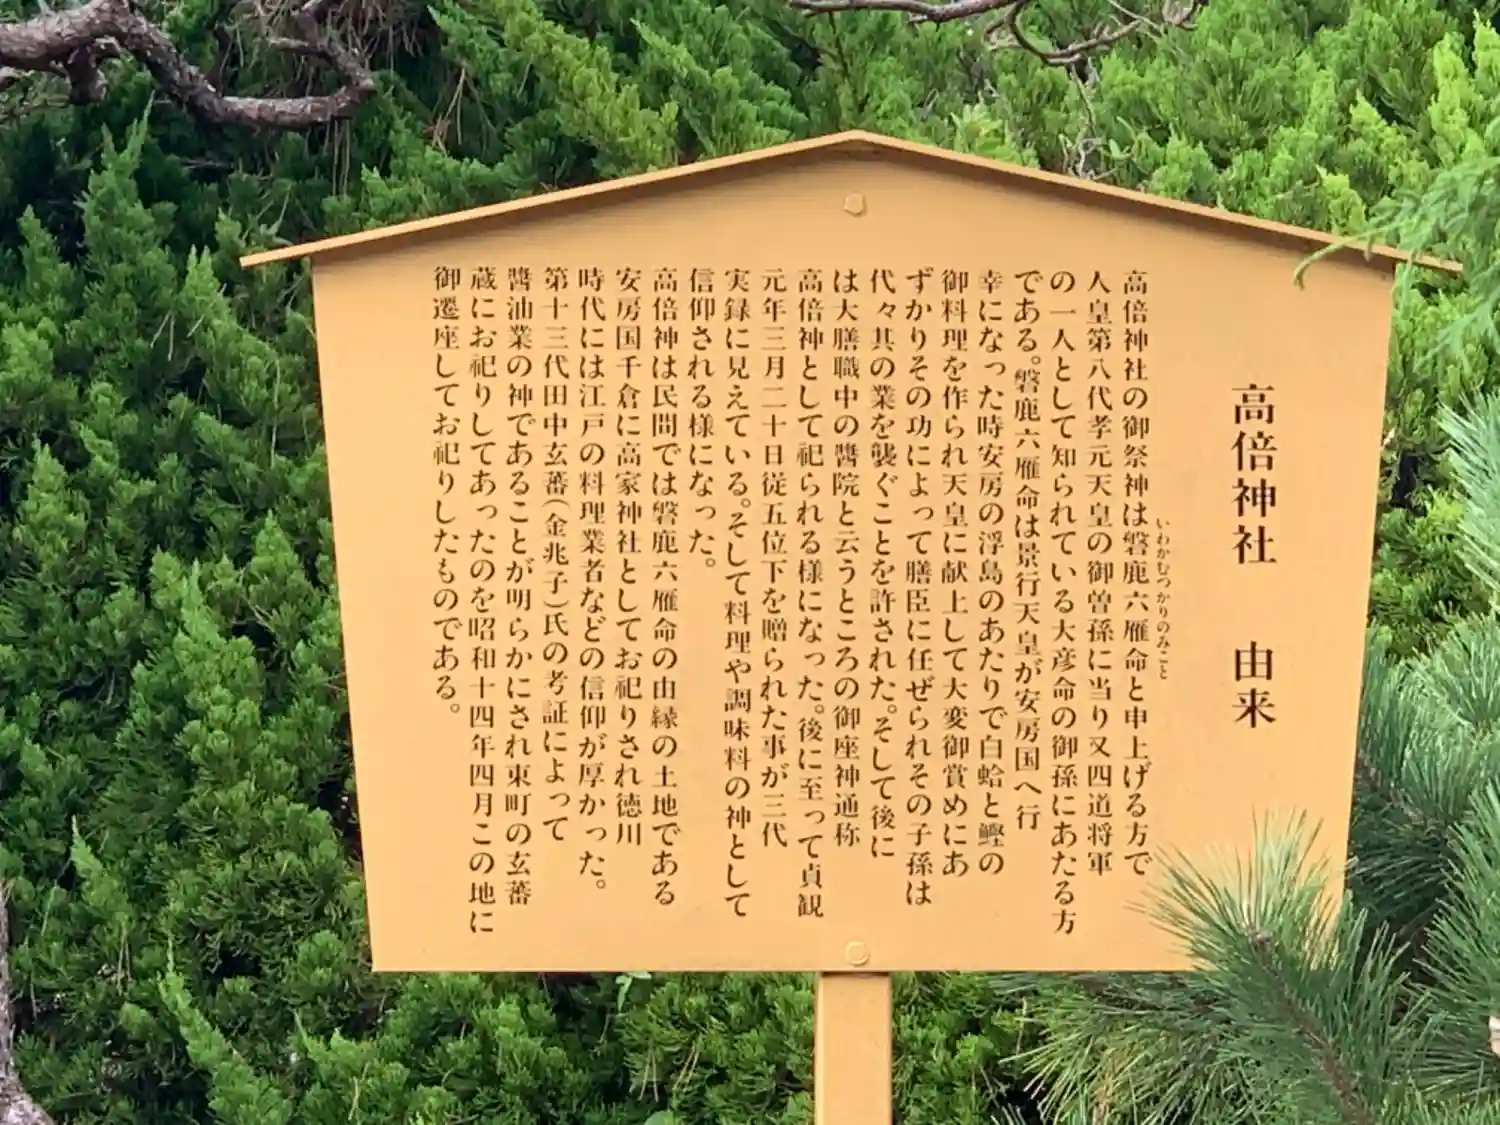 高倍神社　由来
高倍神社の御祭神は磐鹿六雁命と申上げる方で
いわかむつかりのみこと
人皇第八代孝元天皇の御曽孫に当り又四道将軍
の一人として知られている大彦命の御孫にあたる方
である。磐鹿六雁命は景行天皇が安房国へ行
幸になった時安房の浮島のあたりで白蛤と鰹の
御料理を作られ天皇に献上して大変御賞めにあ
ずかりその功によって膳臣に任ぜられその子孫は
代々其の業を襲ぐことを許された。そして後に
は大膳職中の醬院と云うところの御座神通称
高倍神として祀られる様になった。後に至って貞観
元年三月二十日従五位下を贈られた事が三代
実録に見えている。そして料理や調味料の神として
信仰される様になった。
高倍神は民間では磐鹿六雁命の由縁の土地である
安房国千倉に高家神社としてお祀りされ徳川
時代には江戸の料理業者などの信仰が厚かった。
第十三代田中玄蕃(金兆子)氏の考証によって
醬油業の神であることが明らかにされ東町の玄蕃
蔵にお祀りしてあったのを昭和十四年四月この地に
御遷座してお祀りしたものである。